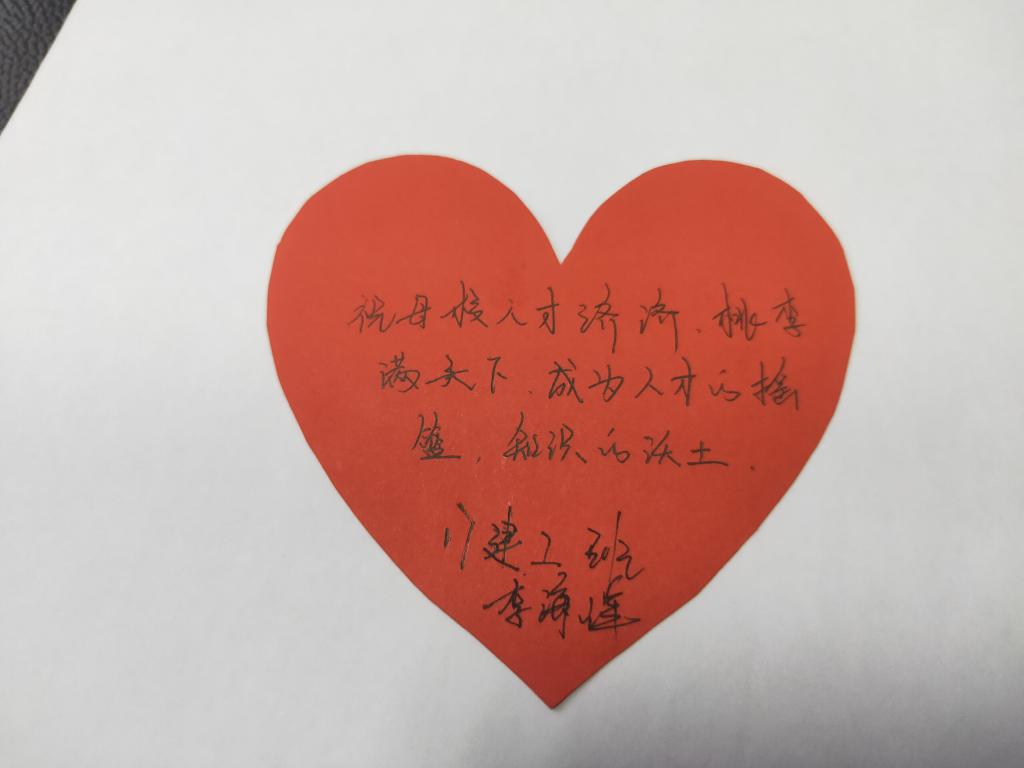 祝母校人才济济、桃李
满天下、成为人才的摇
篮，知识的沃土.
17建工班
李海